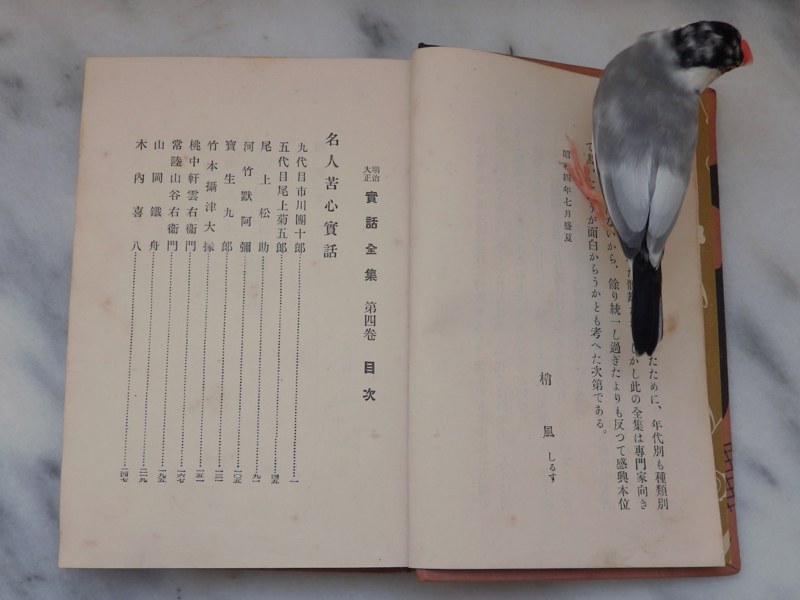 たために、年代別も種類別
かし此の全集は専門家向き
ないから、餘り統一し過ぎたよりも反つて感興本位
うが面白からうかとも考へた次第である。
昭和四年七月盛夏
梢風しるす
明治大正 實話全集 第四卷 目次
名人苦心實話
九代目市川團十郎 一
五代目尾上菊五郎
尾上松助
河竹默阿彌
寶生九郎
竹本攝津大掾
桃中軒雲右衞門
常陸山谷右衞門
山岡鐵舟
木內喜八